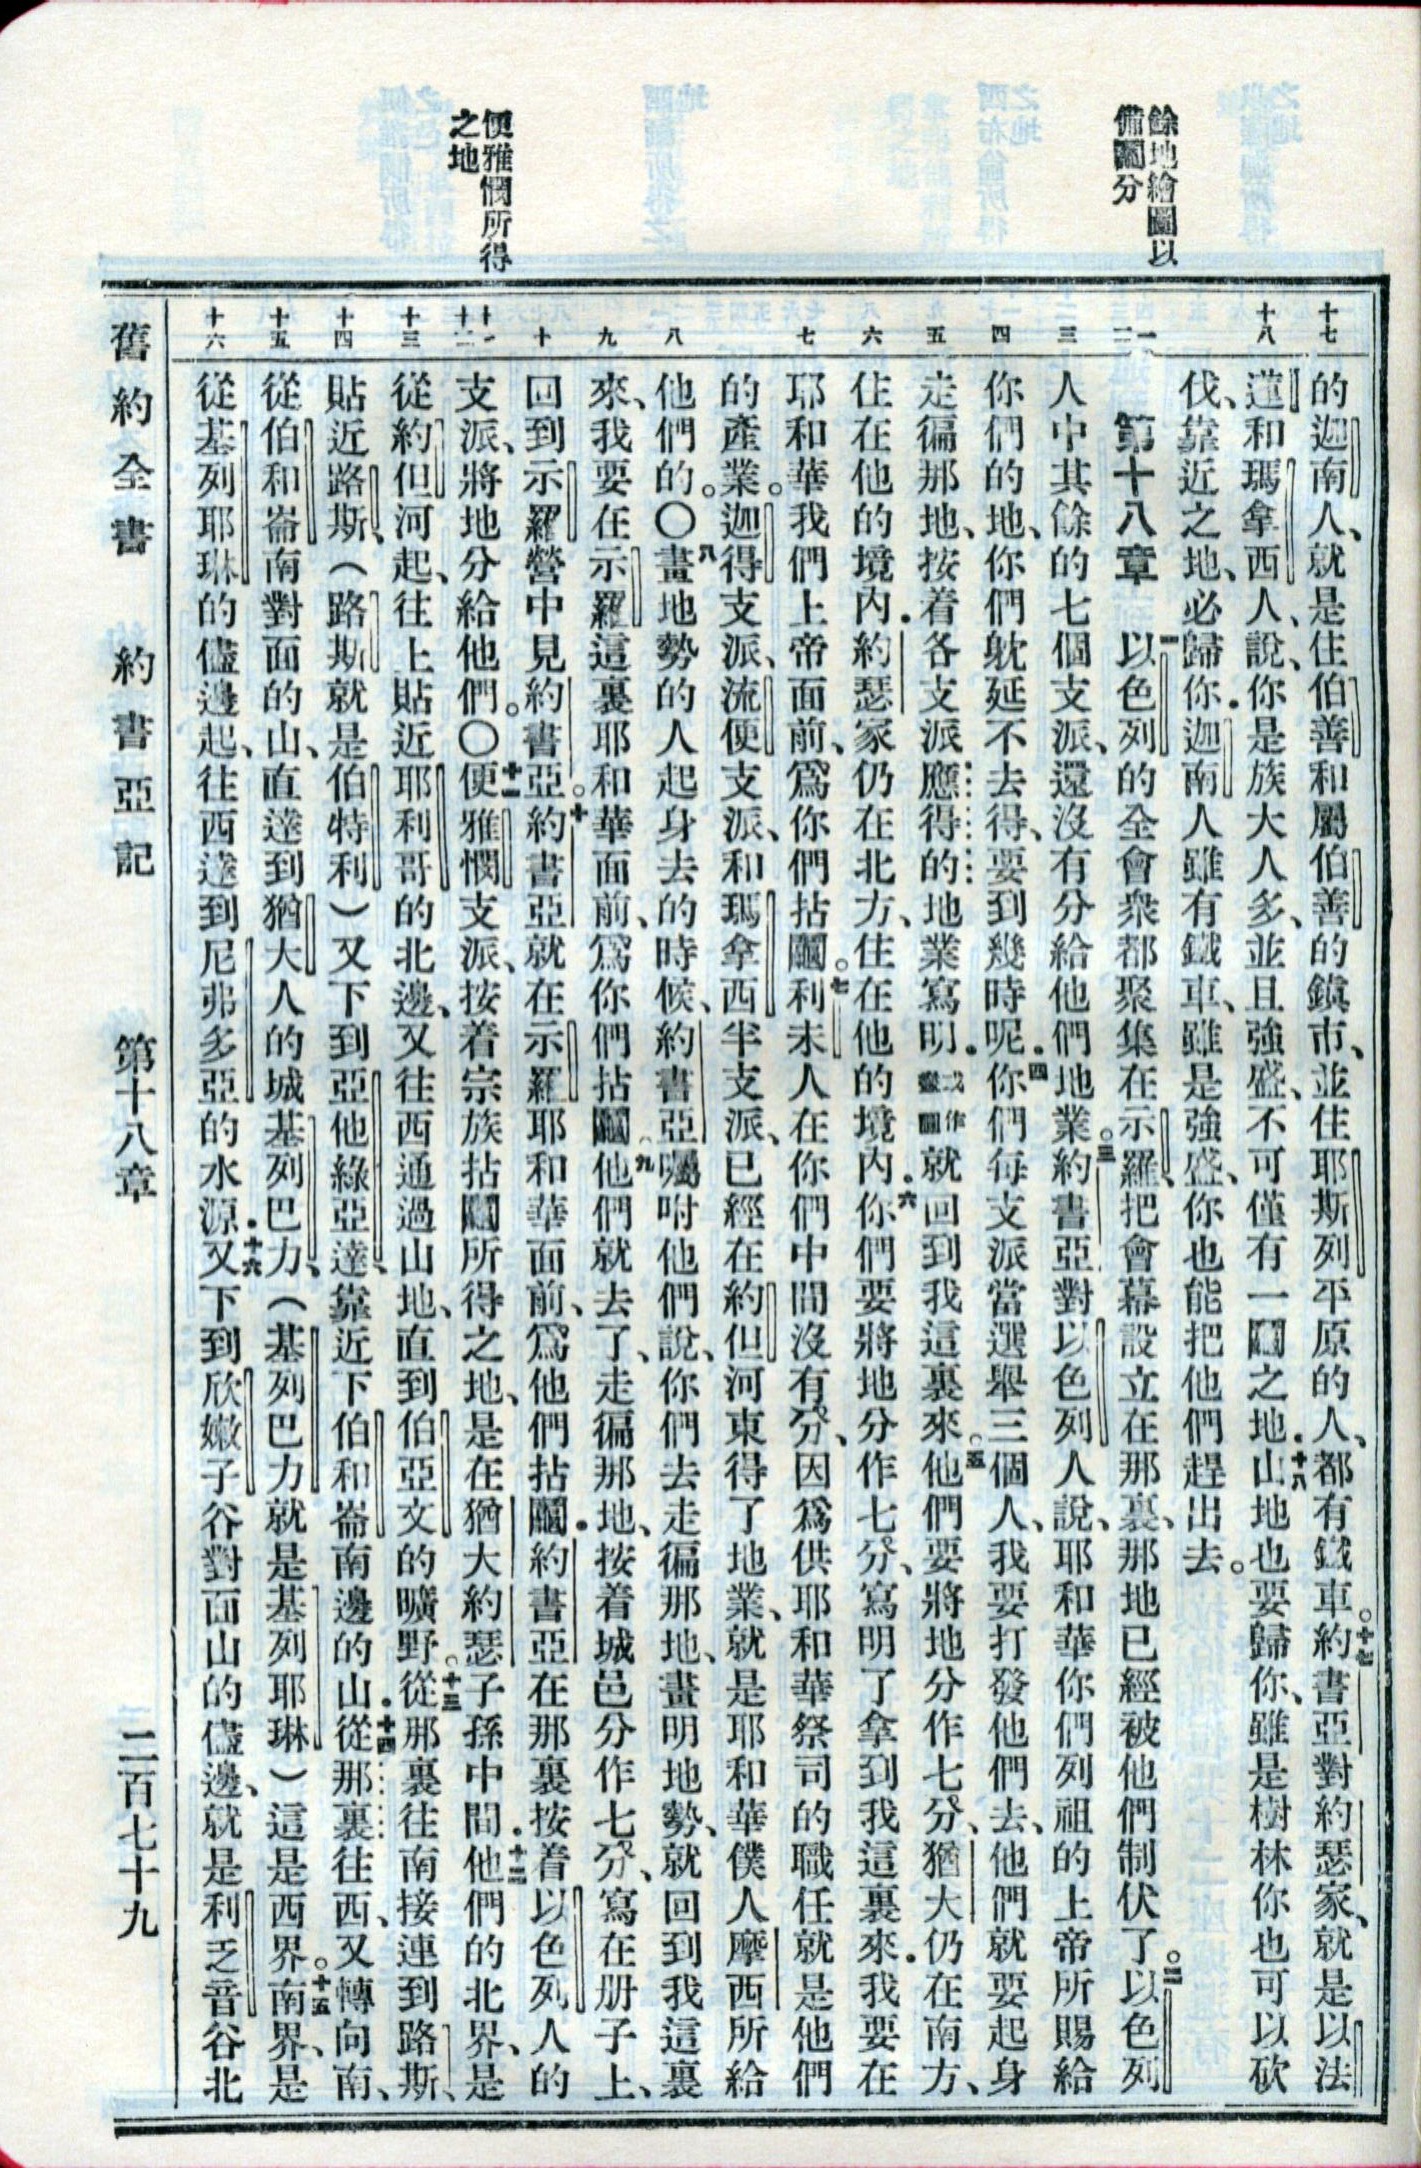 餘地繪圖以
備鬮分
便雅憫所得
之地
十七
十八
一
二
三
四
五
六
七
八
九
十
十一
十二
十三
十四
十五
十六
的迦南人、就是住伯善和屬伯善的鎮市、並住耶斯列平原的人、都有鐵車。十七約書亞對約瑟家、就是以法
蓮和瑪拿西人、說、你是族大人多、並且強盛、不可僅有一鬮之地．十八山地也要歸你、雖是樹林你也可以砍
伐、靠近之地、必歸你．迦南人雖有鐵車、雖是強盛、你也能把他們趕出去。
第十八章 一以色列的全會衆都聚集在示羅、把會幕設立在那裏、那地已經被他們制伏了。二以色列
人中其餘的七個支派、還沒有分給他們地業。三約書亞對以色列人說、耶和華你們列祖的上帝所賜給
你們的地、你們躭延不去得、要到幾時呢．四你們每支派當選舉三個人、我要打發他們去、他們就要起身
走徧那地、按着各支派應得的地業寫明．或作繪圖就回到我這裏來。五他們要將地分作七分、猶大仍在南方、
住在他的境內．約瑟家仍在北方、住在他的境內．六你們要將地分作七分、寫明了拿到我這裏來．我要在
耶和華我們上帝面前、爲你們拈鬮。七利未人在你們中間沒有分、因爲供耶和華祭司的職任就是他們
的產業。迦得支派、流便支派、和瑪拿西半支派、已經在約但河東得了地業、就是耶和華僕人摩西所給
他們的。〇八畫地勢的人起身去的時候、約書亞囑咐他們說、你們去走徧那地、畫明地勢、就回到我這裏
來、我要在示羅這裏耶和華面前、爲你們拈鬮。九他們就去了、走徧那地、按着城邑分作七分、寫在册子上、
回到示羅營中見約書亞。十約書亞就在示羅耶和華面前、爲他們拈鬮．約書亞在那裏按着以色列人的
支派、將地分給他們。〇十一便雅憫支派、按着宗族拈鬮所得之地、是在猶大約瑟子孫中間．十二他們的北界、是
從約但河起、往上貼近耶利哥的北邊、又往西通過山地、直到伯亞文的曠野。十三從那裏往南接連到路斯、
貼近路斯、（路斯就是伯特利）又下到亞他綠亞達、靠近下伯和崙南邊的山．十四從那裏往西、又轉向南、
從伯和崙南對面的山、直達到猶大人的城基列巴力、（基列巴力就是基列耶琳）這是西界。十五南界、是
從基列耶琳的儘邊起、往西達到尼弗多亞的水源．十六又下到欣嫩子谷對面山的儘邊、就是利乏音谷北
舊約全書 約書亞記 第十八章 二百七十九